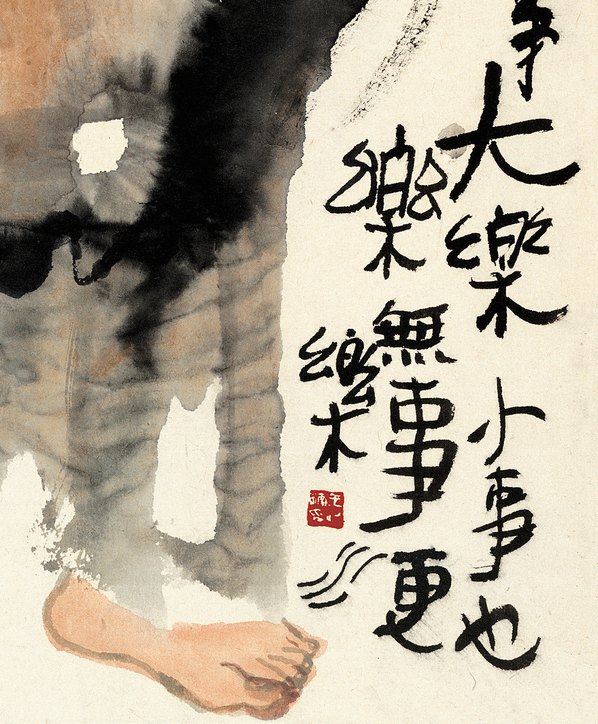 事大樂小事也
樂無事更
樂